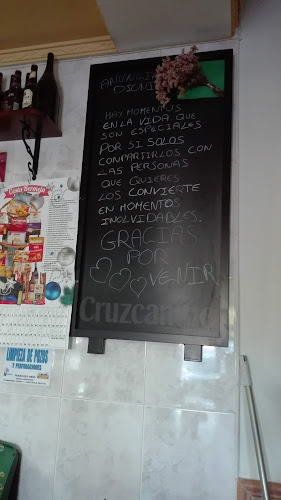 HAY MOMENTOS
EN LA VIDA QUE
SON ESPECIALES
POR SI SOLOS
COMPARTIRLOS CON
LAS PERSONAS
QUE QUIERES
LOS CONVIERTE
EN MOMENTOS
INOLVIDABLES.
GRACIAS
POR
VENIR
Cruzcampo
LIMPIEZA DE POZOS
Y PERFORACIONES